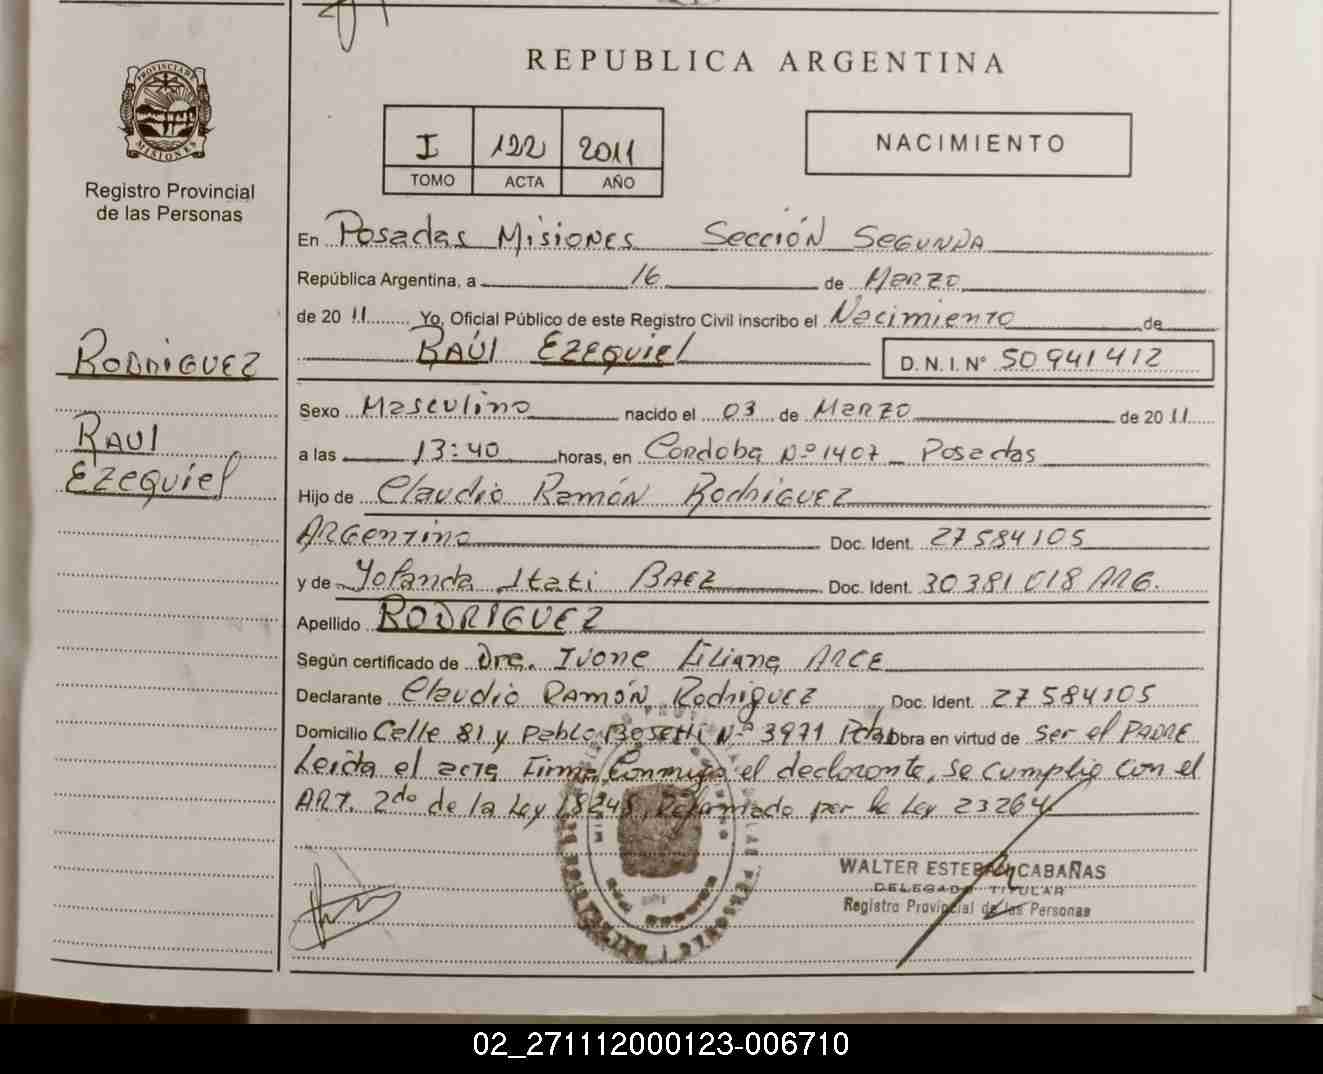 REPUBLICA ARGENTINA
PROVINCIA DE
MISIONES
Registro Provincial
de las Personas
I 122 2011
TOMO ACTA AÑO
NACIMIENTO
En Posadas Misiones Sección Segunda
República Argentina, a 16 de Marzo
de 2011 Yo, Oficial Público de este Registro Civil inscribo el Nacimiento de
RAÚL EZEQUIEL D. N. I. Nº 50941412
RODRIGUEZ
RAUL
EZEQUIEL
Sexo Masculino nacido el 03 de Marzo de 2011
a las 13:40 horas, en Cordoba Nº 1407 Posadas
Hijo de Claudio Ramón Rodriguez
Argentino Doc. Ident. 27584105
y de Yolanda Itati BAEZ Doc. Ident. 30381018 ARG.
Apellido RODRIGUEZ
Según certificado de Dra. Ivone Liliana ARCE
Declarante Claudio Ramón Rodriguez Doc. Ident. 27584105
Domicilio Calle 81 y Pablo Bosetti Nº 3971 Pdas Obra en virtud de ser el PADRE
Leida el acta Firma Conmigo el declarante, se cumplio con el
ART. 2do de la Ley 18248, Reformado por la Ley 23264
WALTER ESTEBAN CABAÑAS
DELEGADO TITULAR
Registro Provincial de las Personas
02_271112000123-006710